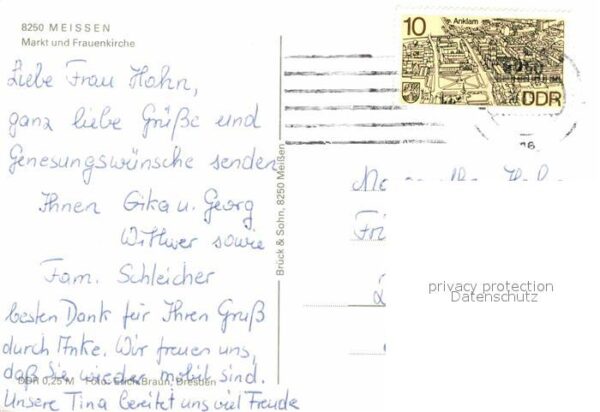 8250 MEISSEN
Markt und Frauenkirche
Liebe Frau Hahn,
ganz liebe Grüße und
Genesungswünsche senden
Ihnen Gika u. Georg
Wittwer sowie
Fam. Schleicher
besten Dank für Ihren Gruß
durch Anke. Wir freuen uns,
daß Sie wieder mobil sind.
Unsere Tina bereitet uns viel Freude
DDR 0,25 M Foto: Erich Braun, Dresden
Brück & Sohn, 8250 Meißen
10
Anklam
DDR
privacy protection
Datenschutz